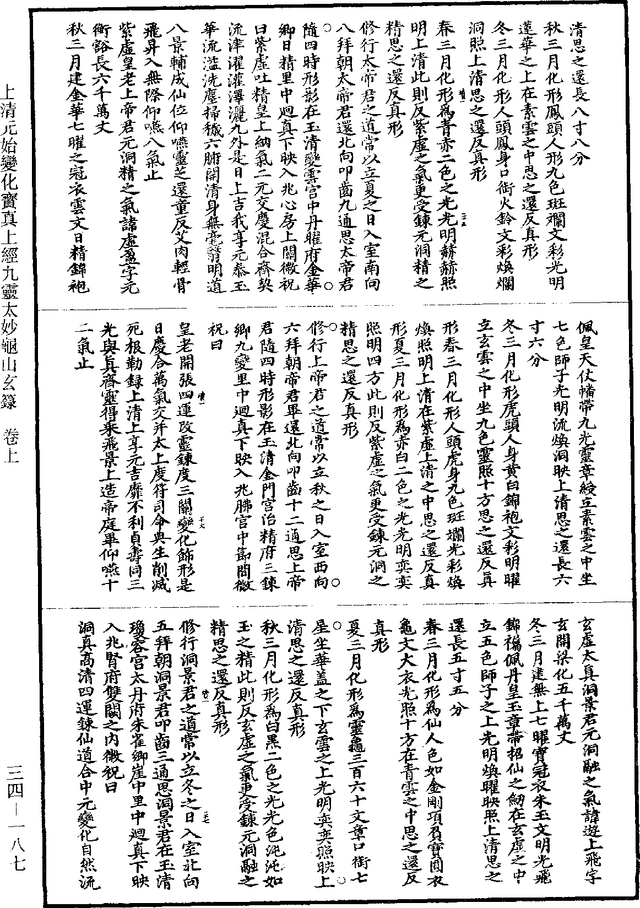 清思之還長八寸八分
秋三月化形鳳頭人形九色斑斕文彩光明
蓮華之上在素雲之中思之還反真形
冬三月化形人頭鳳身口銜火鈴文彩煥爛
洞照上清思之還反真形
春三月化形為青赤二色之光光明赫赫照
明上清此則反紫虛之氣更受鍊元洞精之
精思之還反真形
修行太帝君之道常以立夏之日入室南向
八拜朝太帝君還北向叩齒九通思太帝君
隨四時形影在玉清變雲宮中丹曜府金華
鄉日精里中迴真下映入兆心房上關微祝
曰紫虛吐精皇上納氣二元交慶混合齊契
流津灌溉澤灑九外是日上吉我享元泰玉
華流溢洗塵掃穢六腑開清身無毫翳明道
八景輔成仙位仰嚥靈芝還童反艾肉輕骨
飛昇入無際仰嚥八氣止
紫虛皇老上帝君元洞精之氣諱虛盈字元
衡豁長六千萬丈
秋三月建金華七曜之冠衣雲文日精錦袍
佩皇天仗幡帶九光靈章綬立素雲之中坐
七色師子光明流煥洞映上清思之還長六
寸六分
冬三月化形虎頭人身黃白錦袍文彩明曜
立玄雲之中坐九色靈照十方思之還反真
形春三月化形人頭虎身九色斑斕光彩煥
煥照明上清在紫虛上清之中思之還反真
形夏三月化形為赤白二色之光光明奕奕
照明四方此則反紫虛之氣更受鍊元洞之
精思之還反真形
修行上帝君之道常以立秋之日入室西向
六拜朝帝君畢還北向叩齒十二通思上帝
君隨四時形影在玉清金門宮治精府三鍊
鄉九變里中迴真下映入兆胏宮中節關微
祝曰
皇老開張四運改靈鍊度三關變化飾形是
日慶合萬氣交并太上度符司命與生削滅
死根勒錄上清上享元吉靡不利貞壽同三
光與真齊靈得乘飛景上造帝庭畢仰嚥十
二氣止
玄虛太真洞景君元洞融之氣諱遊上飛字
玄開梁化五千萬丈
冬三月建無上七曜寶冠衣朱玉文明光飛
錦褐佩丹皇玉章帶招仙之劒在玄虛之中
立五色師子之上光明煥曜映照上清思之
還長五寸五分
春三月化形為仙人色如金剛項負寶圓衣
龜文大衣光照十方在青雲之中思之還反
真形
夏三月化形為靈龜三百六十文章口銜七
星坐華蓋之下玄雲之上光明奕奕照映上
清思之還反真形
秋三月化形為白黑二色之光光色純純如
玉之精此則反玄虛之氣更受鍊元洞融之
精思之還反真形
修行洞景君之道常以立冬之日入室北向
五拜朝洞景君叩齒三通思洞景君在玉清
瓊容宮太丹府朱雀鄉崖中里中迴真下映
入兆腎府雙關之內微祝曰
洞真高清四運鍊仙道合中元變化自然流
上清元始變化寶真上經九靈太妙龜山玄籙　卷上
三四—一八七